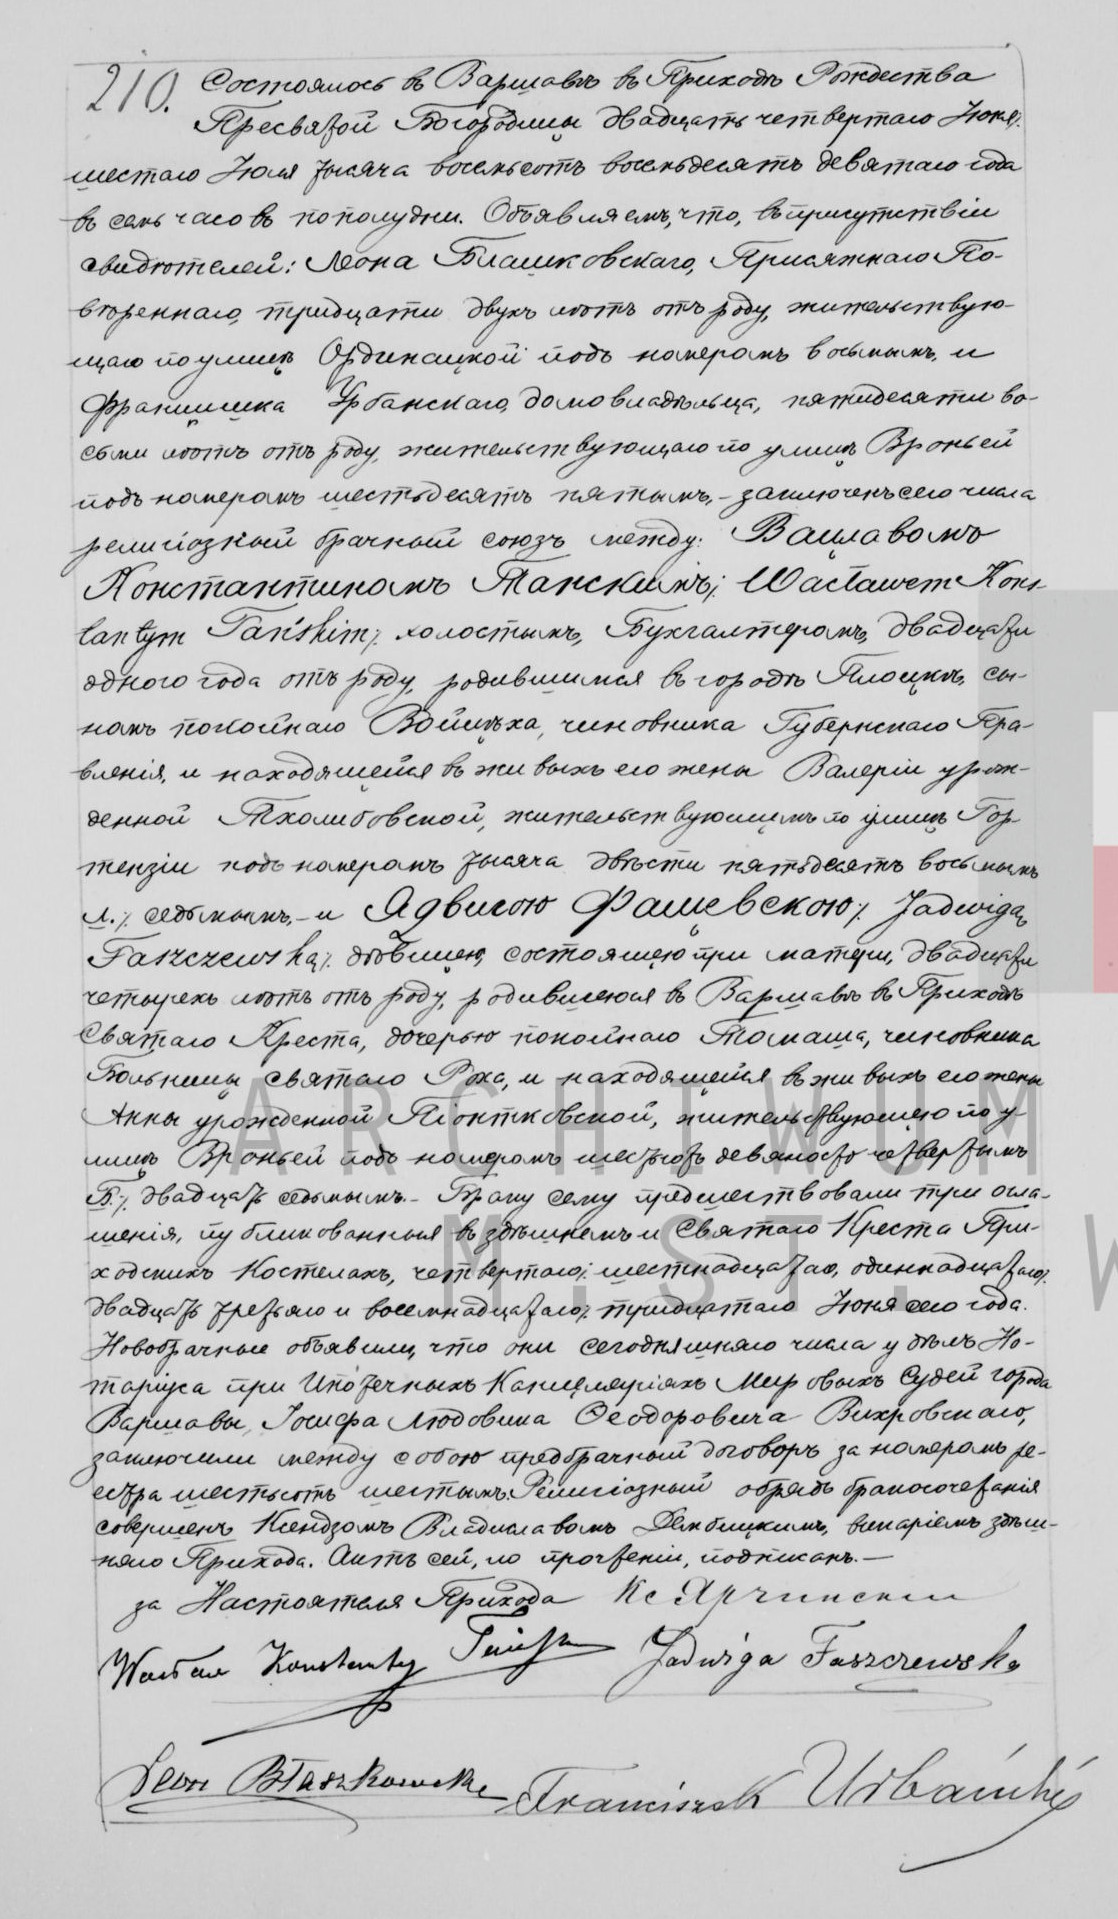 210. Состоялось въ Варшавѣ въ Приходѣ Рождества
Пресвятой Богородицы двадцать четвертаго Іюня /:
шестаго Іюля тысяча восемьсотъ восемьдесятъ девятаго года
въ семь часовъ по полудни. Объявляемъ, что, въ присутствіи
свидѣтелей: Леона Блашковскаго, Присяжнаго По-
вѣреннаго, тридцати двухъ лѣтъ отъ роду, жительствую-
щаго по улицѣ Ординацкой подъ номеромъ восьмымъ, и
Францишка Урбанскаго, домовладѣльца, пятидесяти во-
сьми лѣтъ отъ роду, жительствующаго по улицѣ Броньей
подъ номеромъ шестьдесятъ пятымъ, – заключенъ сего числа
религіозный брачный союзъ между: Вацлавомъ
Константиномъ Танскимъ /: Wacławem Kons-
tantym Tańskim /: холостымъ, Бухгалтеромъ, двадцати
одного года отъ роду, родившимся въ городѣ Плоцкѣ, сы-
номъ покойнаго Войцѣха, чиновника Губернскаго Пра-
вленія, и находящейся въ живыхъ его жены Валеріи урож-
денной Тхолибовской, жительствующимъ по улицѣ Гор
тензіи подъ номеромъ тысяча двѣсти пятьдесятъ восьмымъ
Л. /: седьмымъ, – и Ядвигою Фащевскою /: Jadwigą
Faszczewską /: дѣвицею, состоящею при матери, двадцати
четырехъ лѣтъ отъ роду, родившеюся въ Варшавѣ въ Приходѣ
Святаго Креста, дочерью покойнаго Томаша, чиновника
Больницы святаго Роха, и находящейся въ живыхъ его жены
Анны урожденной Піонтковской, жительствующею по у
лицѣ Броньей подъ номеромъ шестьсотъ девяносто четвертымъ
Б. /: двадцать седьмымъ. – Браку сему предшествовали три огла-
шенія, публикованныя въ здѣшнемъ и Святаго Креста При-
ходскихъ Костелахъ, четвертаго /: шестнадцатаго, одиннадцатаго /:
двадцать третьяго и восемнадцатаго /: тридцатаго Іюня сего года.
Новобрачные объявили, что они сегодняшняго числа у дѣлъ Но-
таріуса при Ипотечныхъ Канцеляріяхъ Мировыхъ Судей города
Варшавы, Іосифа Людовика Феодоровича Вихровскаго,
заключили между собою предбрачный договоръ за номеромъ ре-
естра шестьсотъ шестымъ. Религіозный обрядъ бракосочетанія
совершенъ Ксендзомъ Владиславомъ Дембицкимъ, викаріемъ здѣш-
няго Прихода. Актъ сей, по прочтеніи, подписанъ. –
за Настоятеля Прихода Кс Ярчинскій
Wacław Konstanty Tański Jadwiga Faszczewska
Leon Błaszkowski Franciszek Urbański
ARCHIWUM
M.ST. W